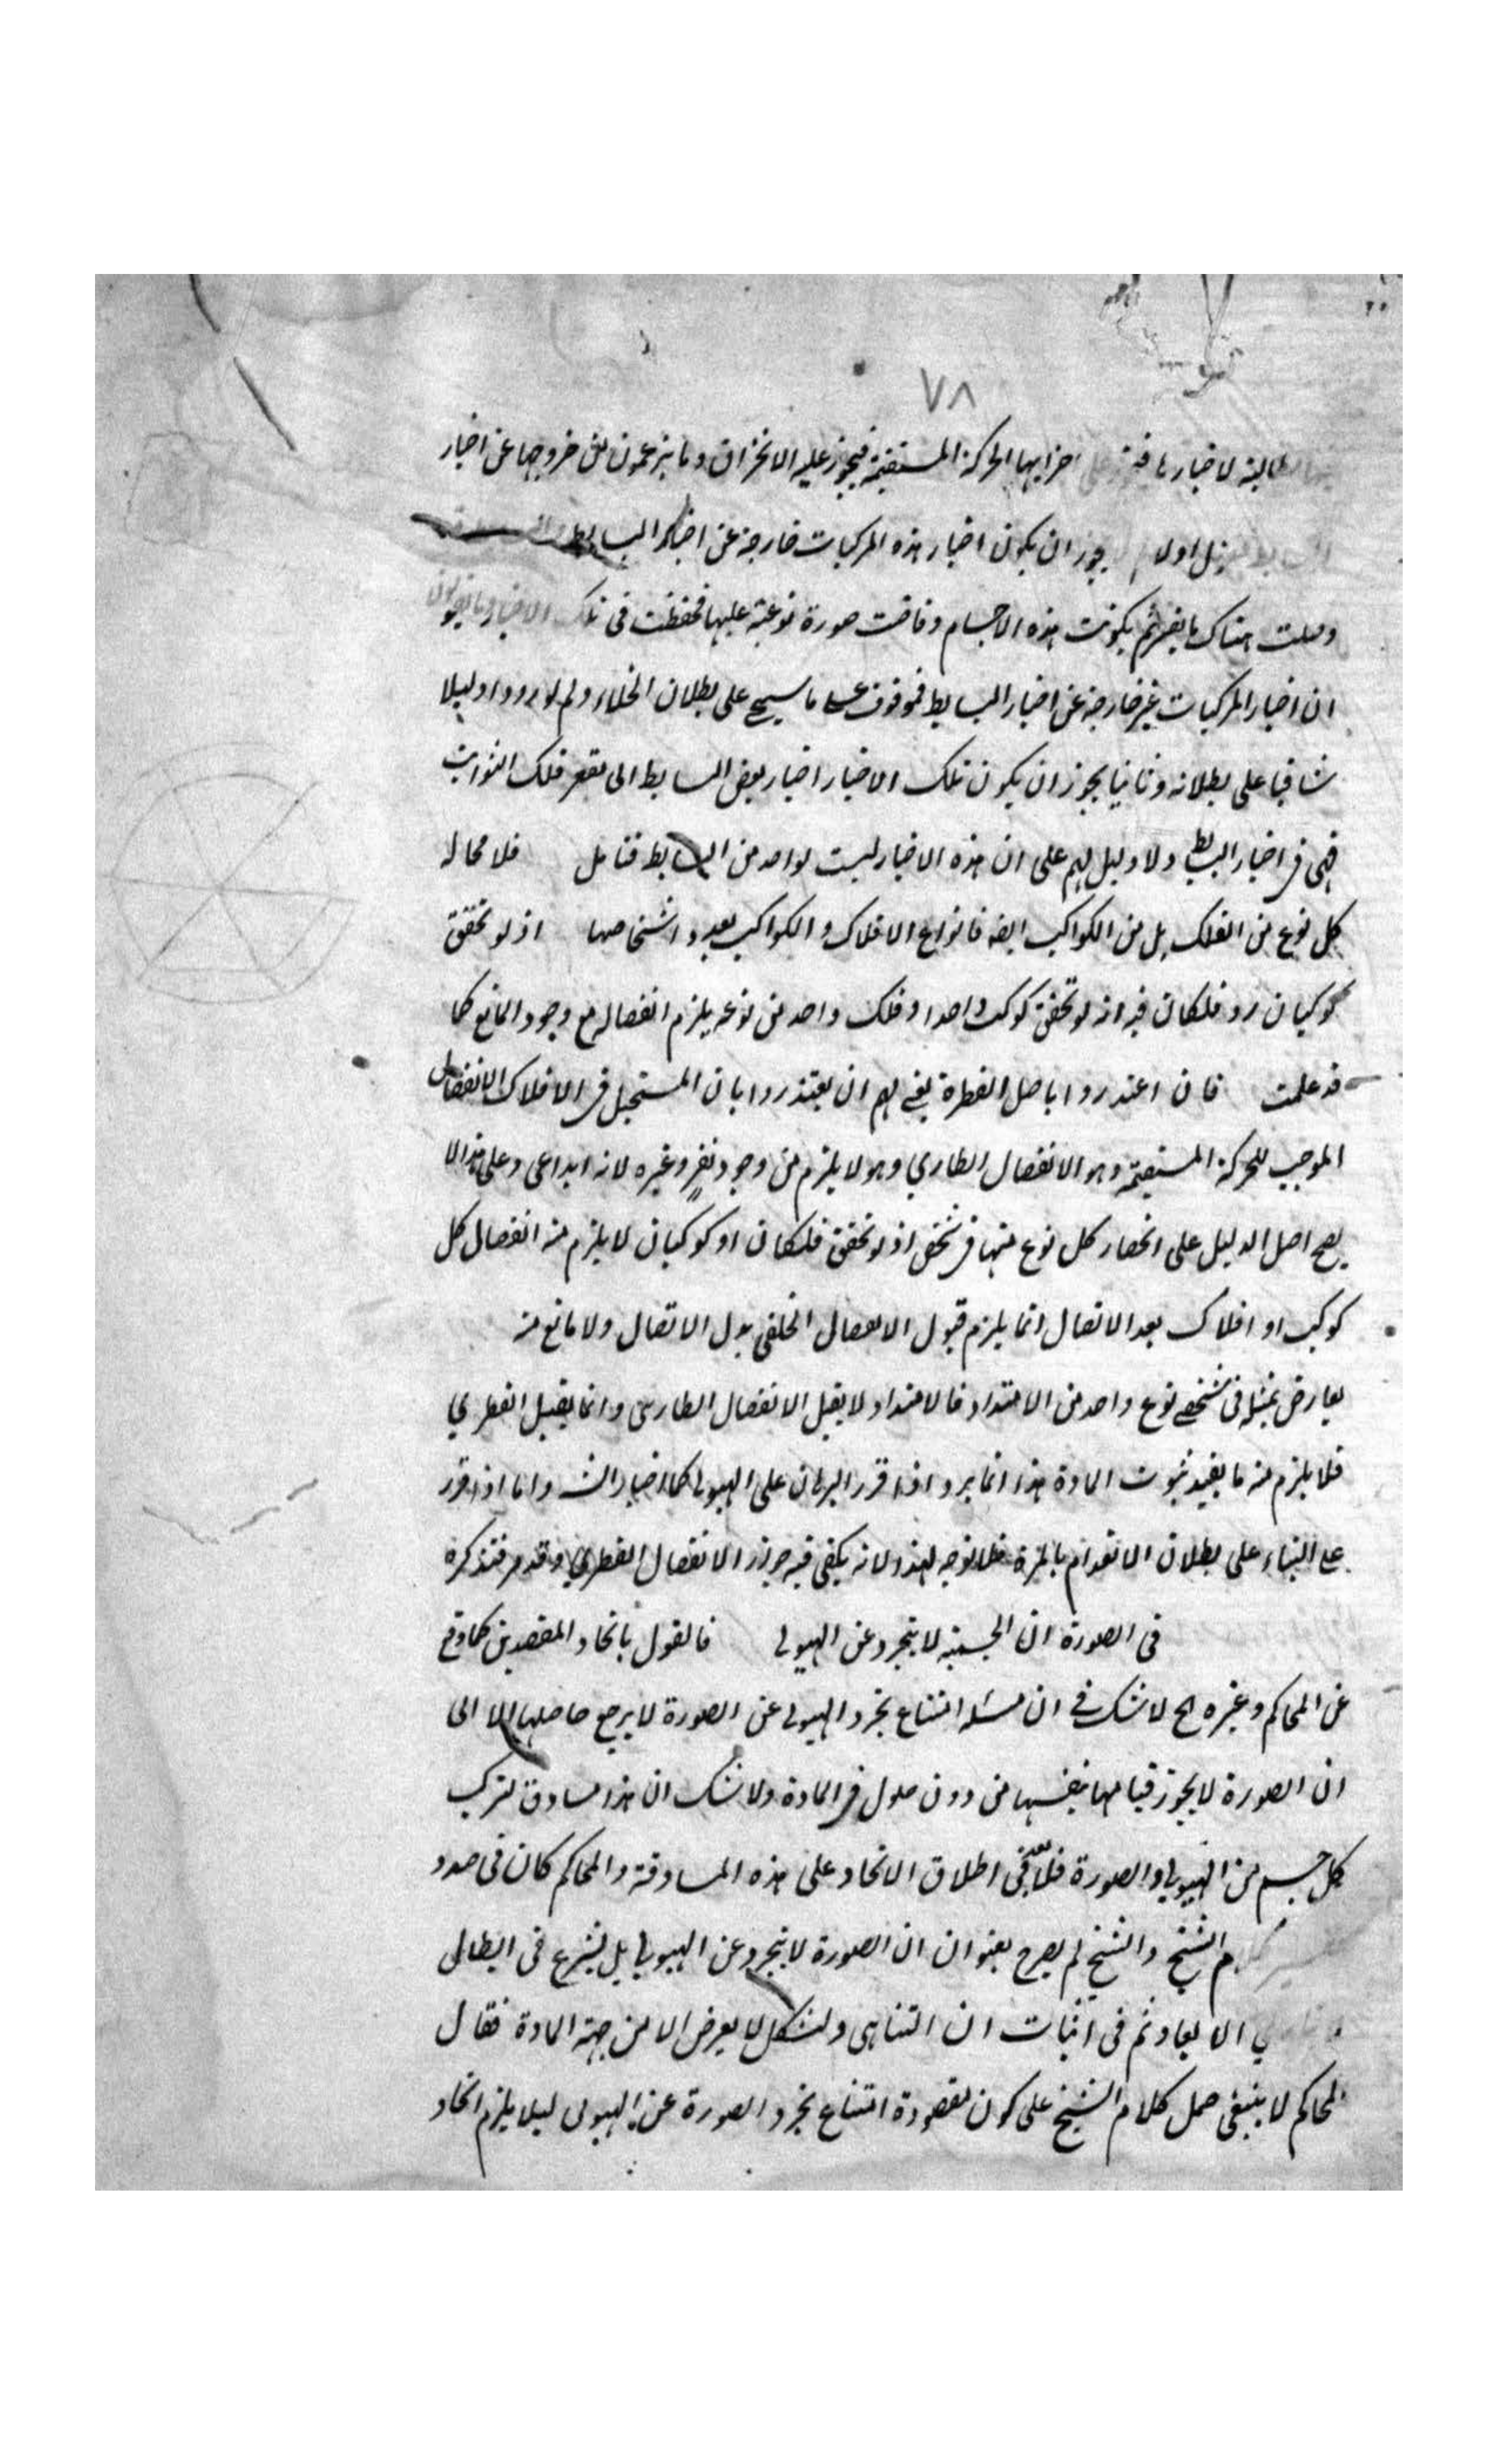 ٧٨
الطالبة لاخيارها فيجوز على اجزايها الحركة المستقيمة فيجوز عليه الانخراق وما يزعمون من خروجها عن اخيار
اولا يجوز ان يكون اخيار هذه المركبات خارجة عن اخيار البسايط
هناك ثم يكونت هذه الاجسام وفاضت صورة نوعية عليها فحفظت فى تلك الاخيار
ان اخيار المركبات غير خارجة عن اخيار البسايط فموقوف على ما سيجي على بطلان الخلاء ولم يوردوا دليلا
شافيا على بطلانه وثانيا يجوز ان يكون تلك الاخيار اخيار بعض البسايط الى مقعر فلك الثوابت
فهى فى اخيار البسايط ولا دليل لهم على ان هذه الاخيار ليست لواحد من البسايط فتامل فلا محاله
كل نوع من الفلك بل من الكواكب ايضه فانواع الافلاك والكواكب بعدد اشخاصها اذ لو تحقق
كوكبان او فلكان فيه اذ لو تحقق كوكب واحد او فلك واحد من نوعه يلزم انفصاله مع وجود المانع كما
قد علمت فان اعتذروا باصل الفطرة بقى لهم ان يعتذروا بان المستحيل فى الافلاك الانفصال
الموجب للحركة المستقيمة وهو الانفصال الطارى وهو لا يلزم من وجود نفر وغيره لانه ابداعى وعلى هذا لا
يصح اصل الدليل على انحصار كل نوع منها فى شخص اذ لو تحقق فلكان او كوكبان لا يلزم منه انفصال كل
كوكب او افلاك بعد الاتصال انما يلزم قبول الانفصال الخلقى بدل الاتصال ولا مانع منه
يعارض بمثله فى شخصى نوع واحد من الامتداد فالامتداد لا يقبل الانفصال الطارى وانما يقبل الفطري
فلا يلزم منه ما يفيد ثبوت المادة هذا انما يرد اذا قرر البرهان على الهيولى كما اختار الش واما اذا قرر
على البناء على بطلان الانعدام بالمرة فلا توجه لهذا لانه يكفى فيه جواز الانفصال الفطري وقد مر فتذكره
فى الصورة ان الجسمية لا يتجرد عن الهيولى فالقول باتحاد المقصدين كما وقع
عن المحاكم وغيره اح لا شك فى ان مسئلة امتناع تجرد الهيولى عن الصورة لا يرجع حاصلها الا الى
ان الصورة لا يجوز قيامها بنفسها من دون حلول فى المادة ولا شك ان هذا مساوق لتركب
كل جسم من الهيولى والصورة فلا بعد فى اطلاق الاتحاد على هذه المساوقة والمحاكم كان فى صدد
الشيخ والشيخ لم يصرح بعنوان ان الصورة لا يتجرد عن الهيولى بل يشرع فى ابطال
الابعاد ثم فى اثبات ان التناهى والشكل لا يعرض الا من جهة المادة فقال
المحاكم لا ينبغى حمل كلام الشيخ على كون مقصوده امتناع تجرد الصورة عن الهيولى ليلا يلزم اتحاد